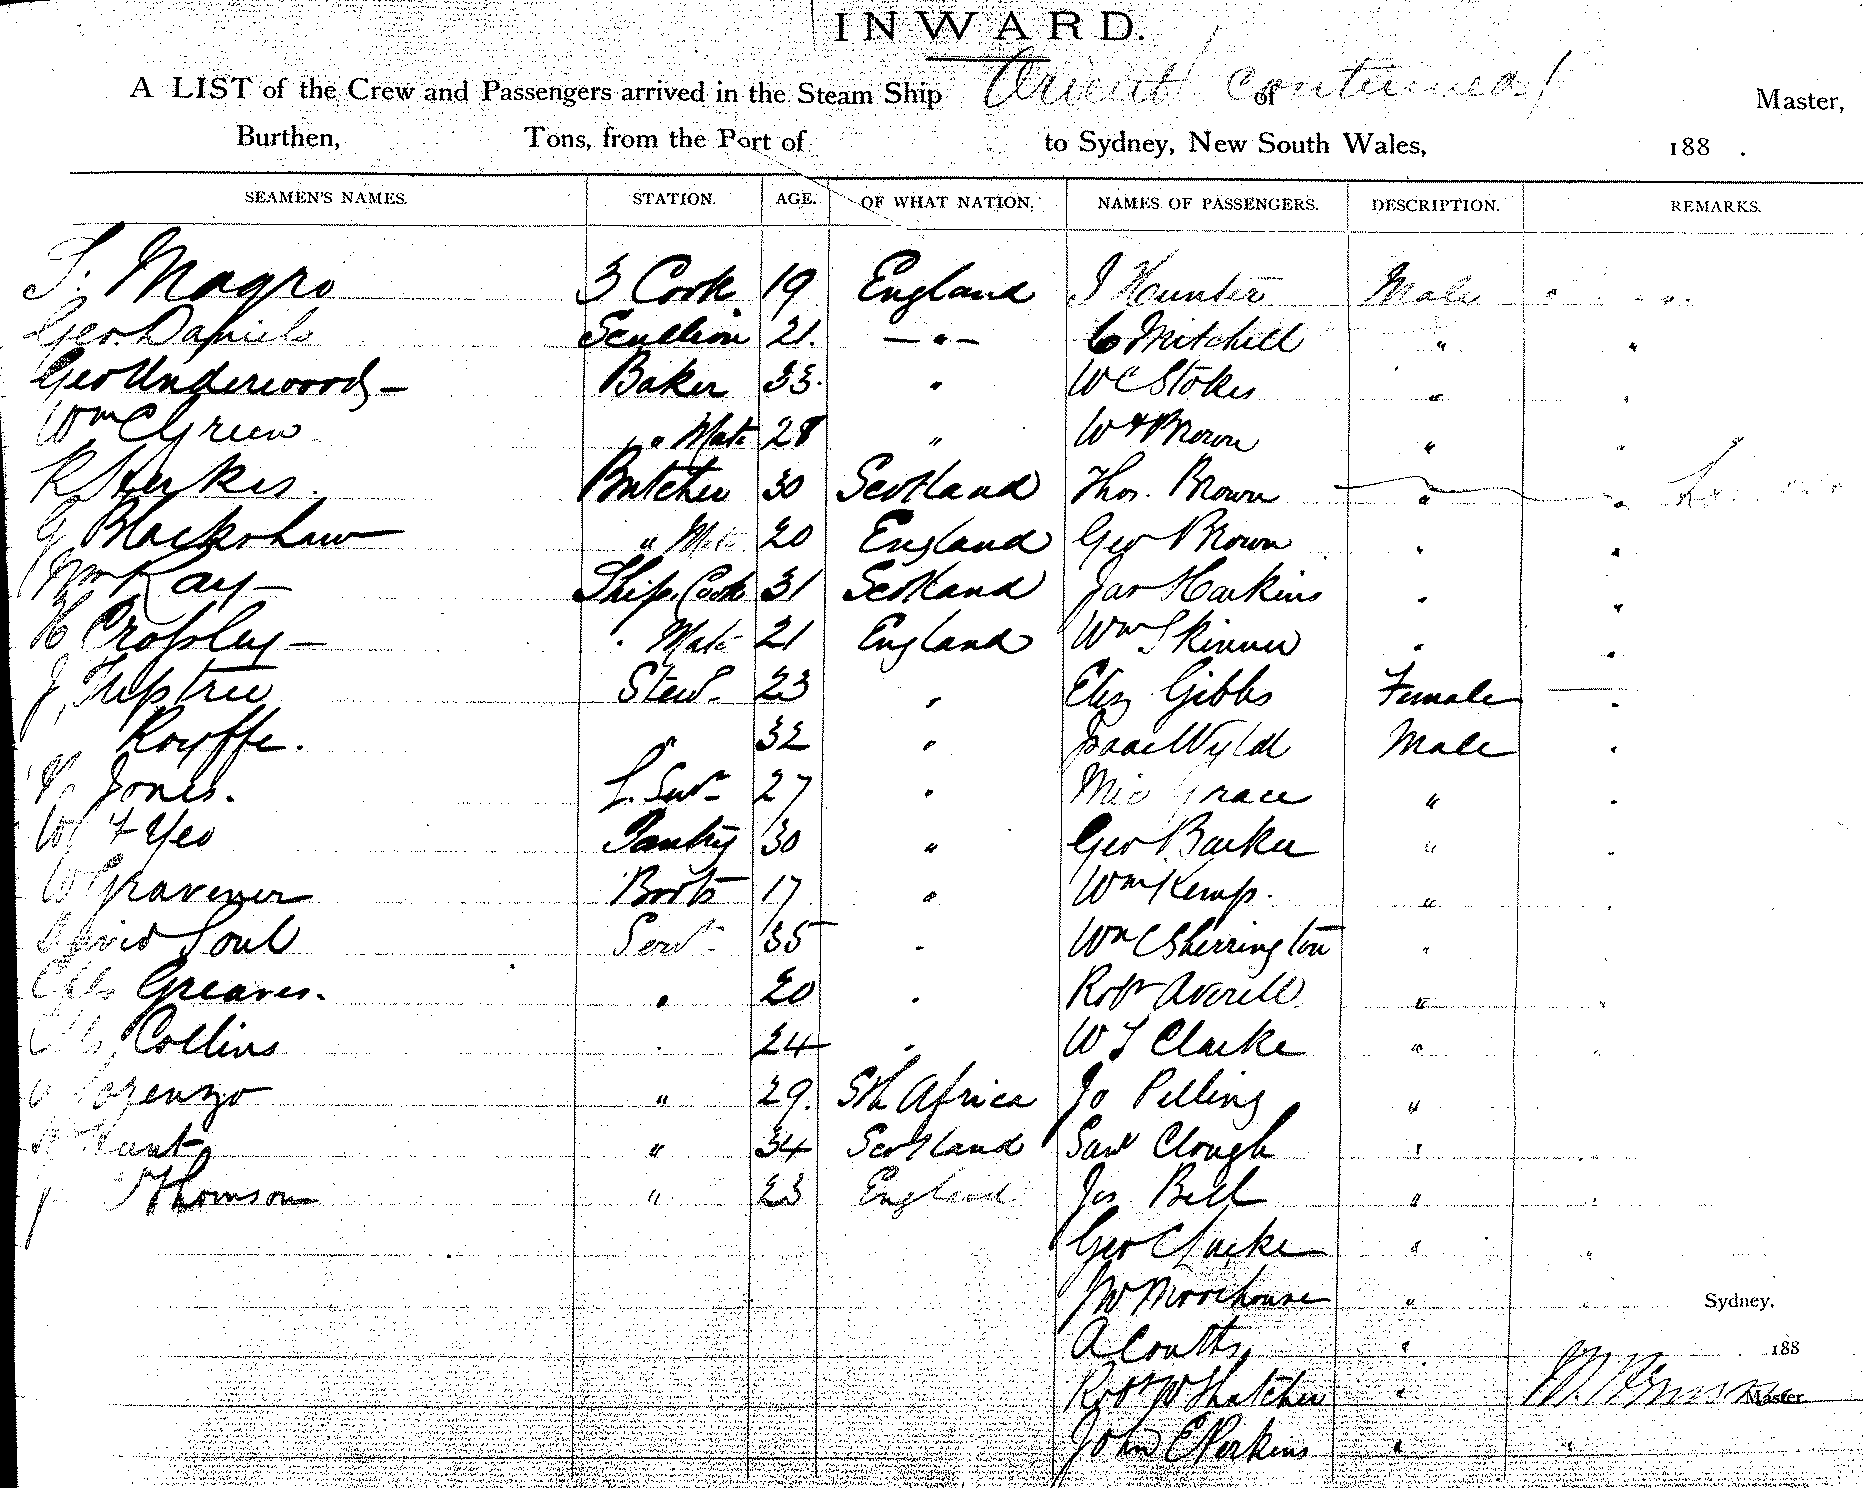 INWARD.
A LIST of the Crew and Passengers arrived in the Steam Ship Orient Continued of Master,
Burthen, Tons, from the Port of to Sydney, New South Wales, 188 .
SEAMEN'S NAMES. STATION. AGE. OF WHAT NATION. NAMES OF PASSENGERS. DESCRIPTION. REMARKS.
S. Magro 3 Cook 19 England J Hunter Male
Geo Daniels Scullion 21. — " — C Mitchell " "
Geo Underwood — Baker 33. " W C Stokes " "
Wm C Green " Mate 28 " W H Brown " "
R Butcher 30 Scotland Thos. Brown " "
G Blackshaw " Mate 20 England Geo Brown " "
Wm Kay — Ships Cook 31 Scotland Jas Harkins " "
H Crossley — " Mate 21 England Wm Skinner " "
J Tiptree Stewd 23 " Eliz Gibbs Female "
Royffe. " 32 " Isaac Wyld Male "
Jones. 27 " Grace " "
W F Yeo Pantry 30 " Geo Barker " "
W Gravener Boots 17 " Wm Kemp. " "
David Soul Servt 35 " Wm C Sherrington " "
Chls Greaves. " 20 " Robt Averell " "
Chls Collins " 24 " W S Clarke " "
Lorenzo " 29. Sth Africa Jo Pelling "
Hunt " 34 Scotland Saml Clough "
J Thomson " 23 England Jas Bell " "
Geo Clarke " "
J W Moorhouse " " Sydney,
A Coutts " 188
Robt W Thatcher " Master
John E Perkins " "